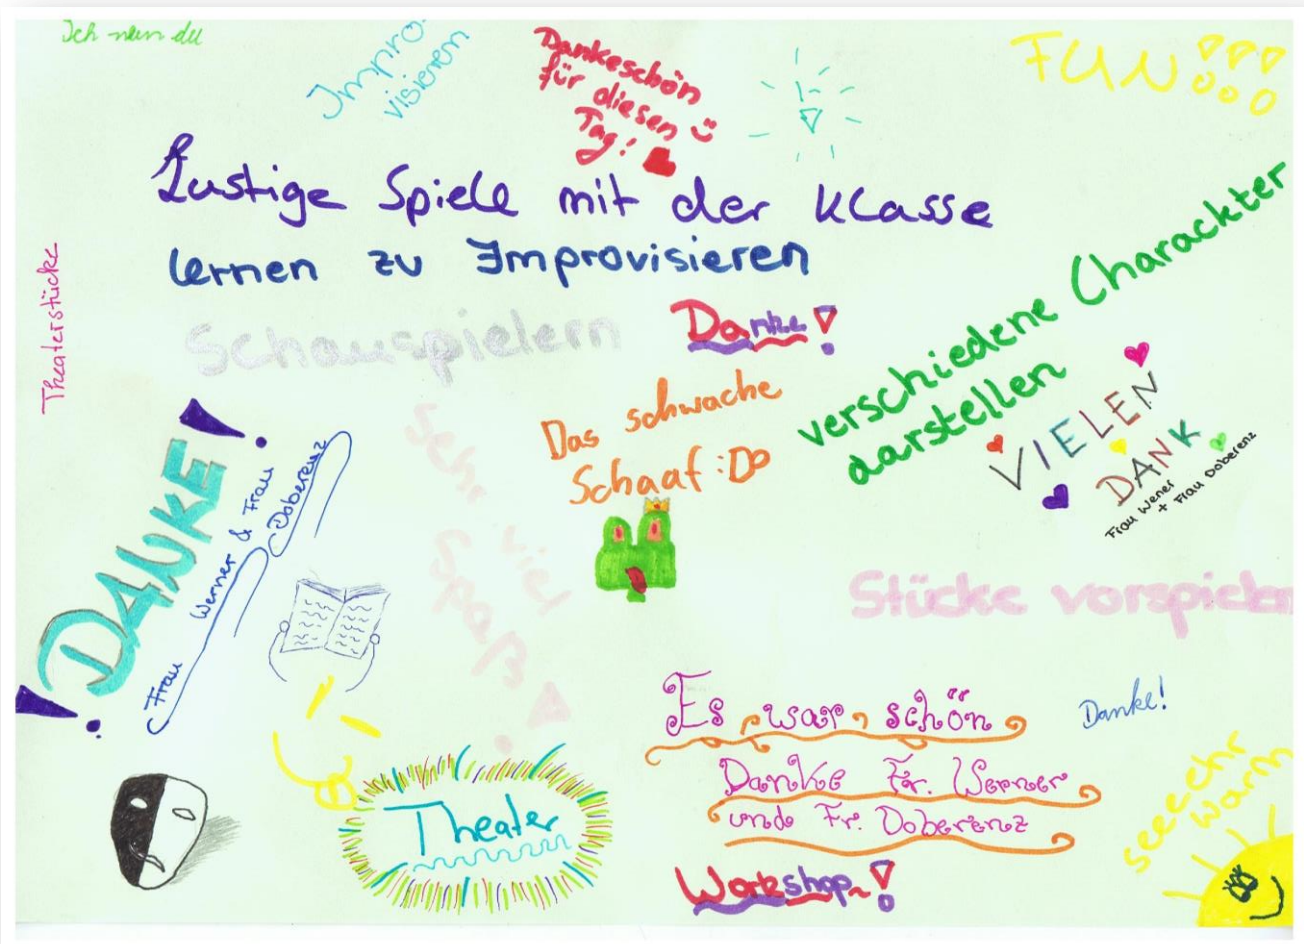 Ich nein du
Impro-
visieren
Dankeschön
für diesen
Tag!
FUN!!!
Lustige Spiele mit der Klasse
lernen zu Improvisieren
Schauspielern
Theaterstücke
Danke!
verschiedene Charackter
darstellen
Das schwache
Schaaf :D
VIELEN
DANK
Frau Wener
+ Frau Doberenz
!DANKE!
Frau Werner & Frau
Doberenz
Sehr viel
Spaß!
Stücke vorspielen
Es war schön
Danke Fr. Werner
und Fr. Doberenz
Danke!
seeeehr
warm
Theater
Workshop!